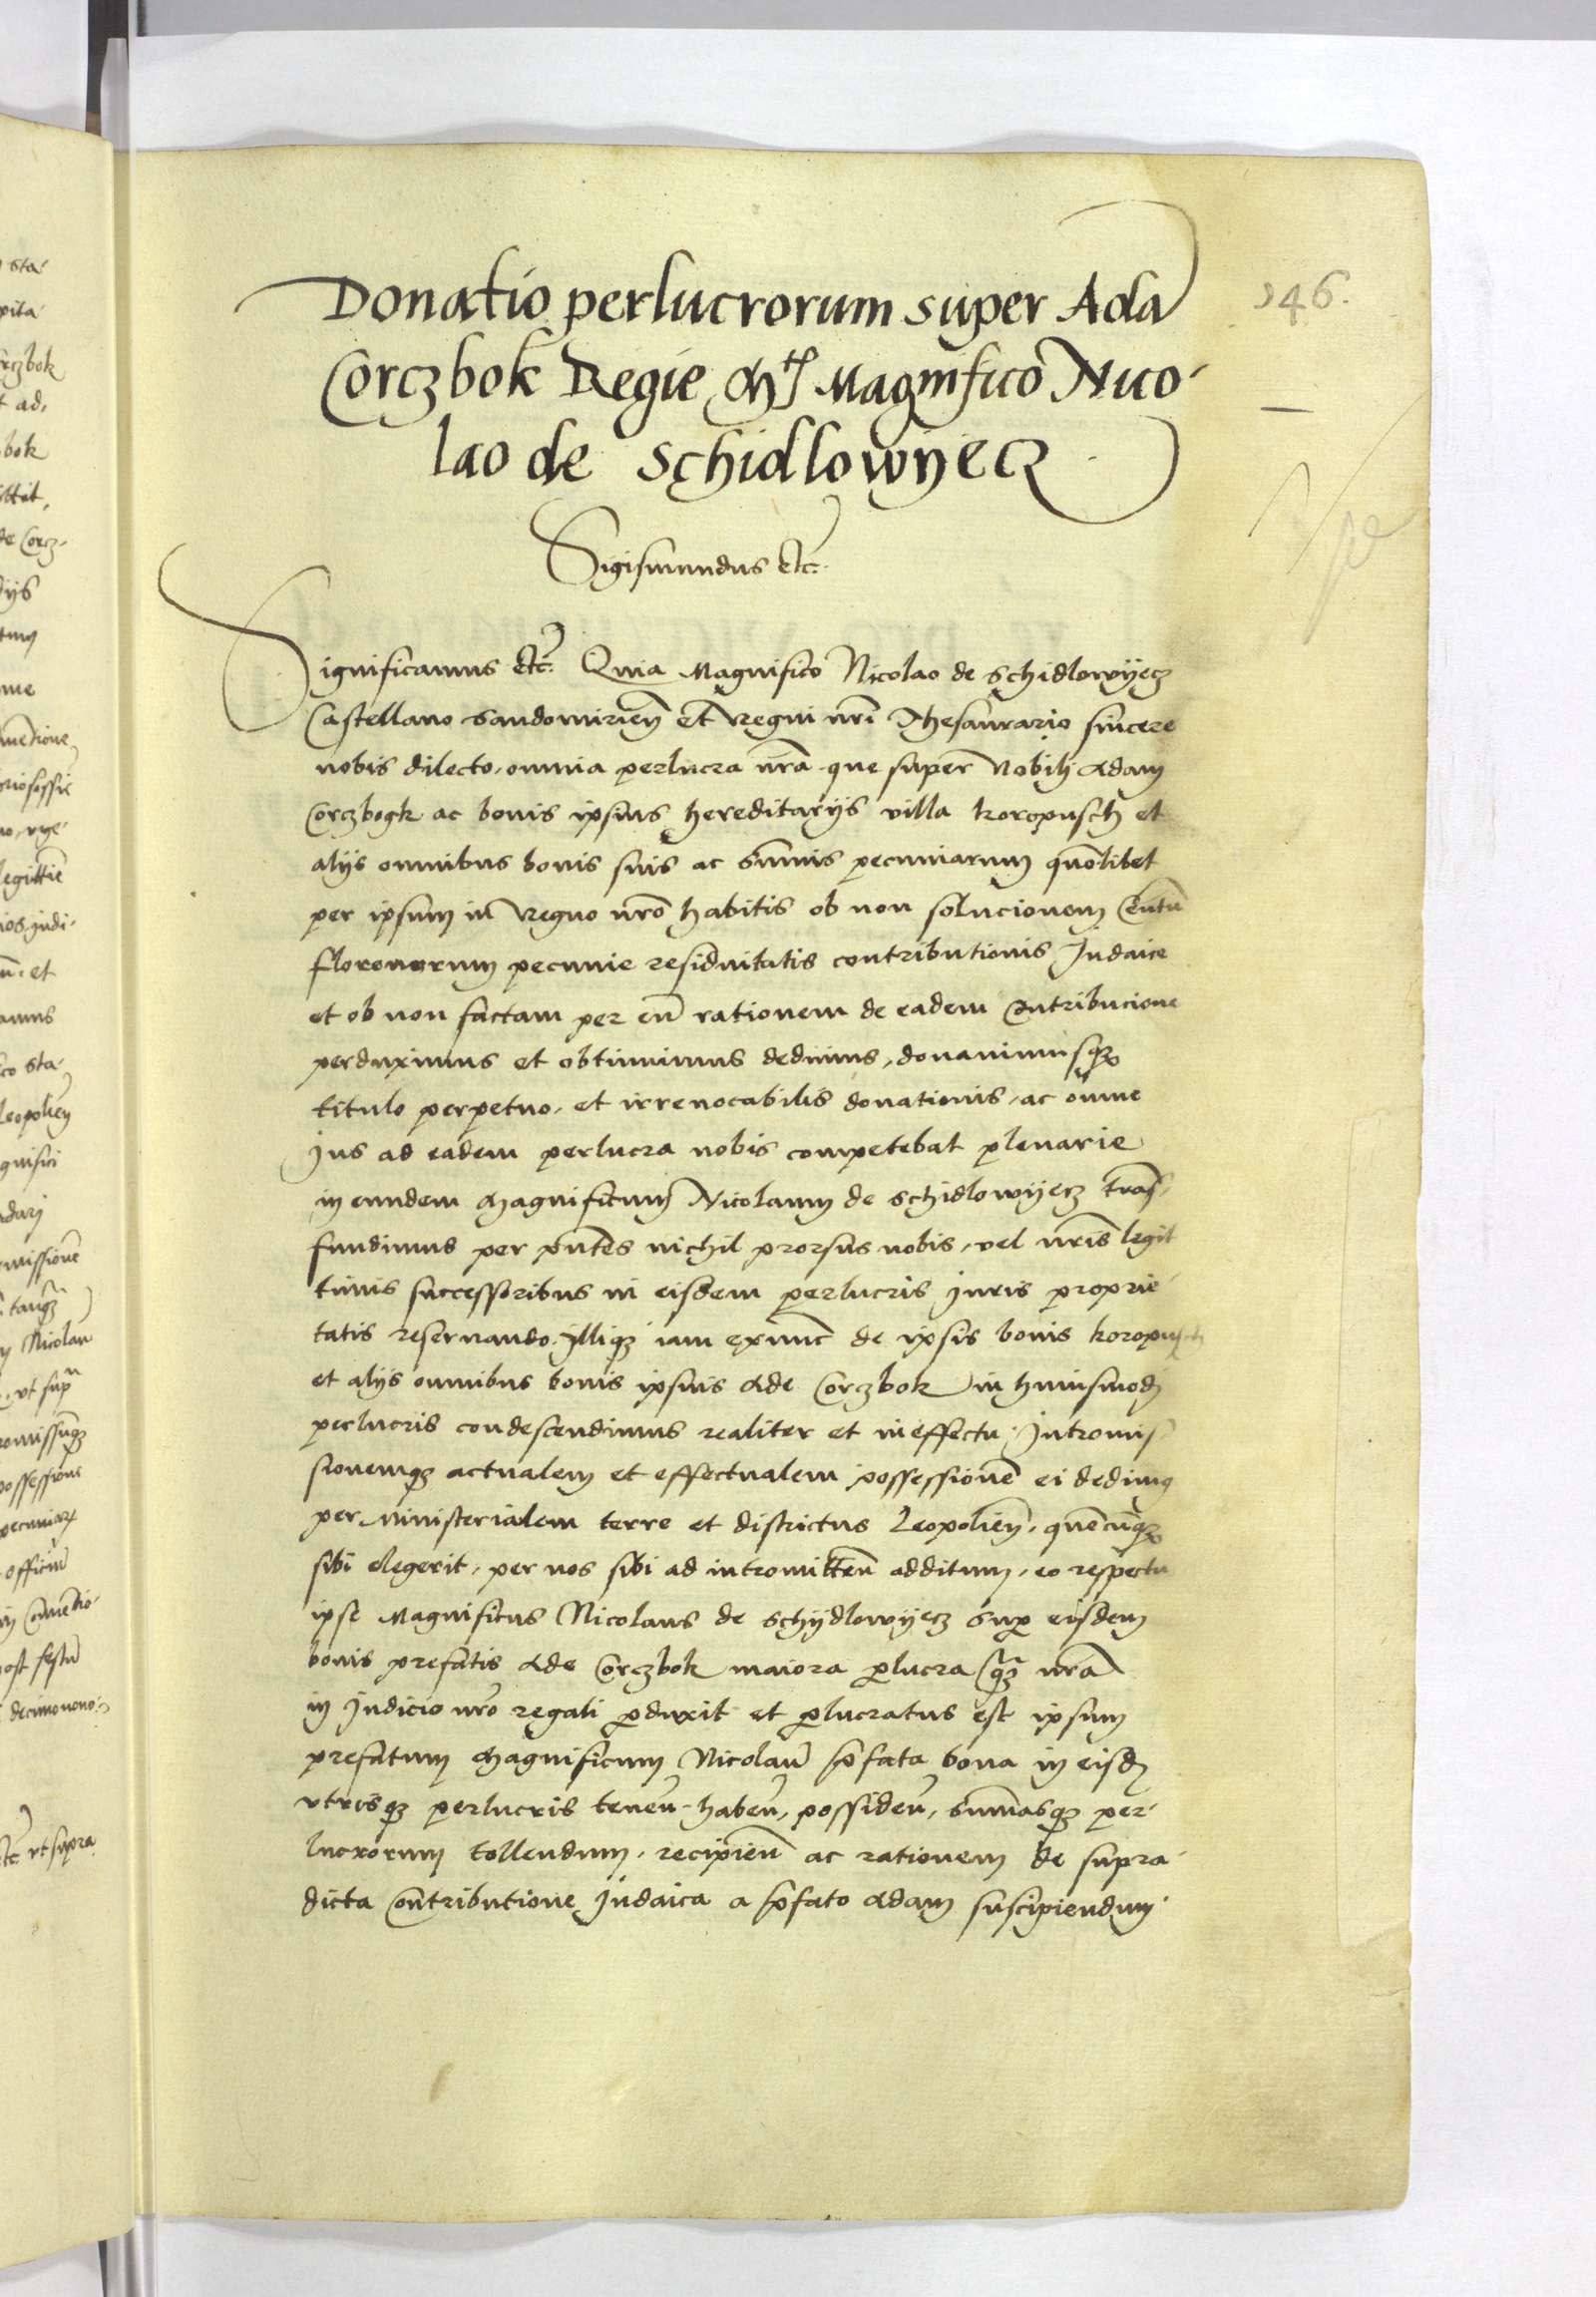 Donatio perlucrorum super Adā
Corczbok Regie Mtis Magnifico Nico-
lao de Schidlowyecz
146.
Sigismundus etc.
Significamus etc. Quia Magnifico Nicolao de Schidlowyecz
Castellano Sandomirieñ et Regni nr̄i Thesaurario sincere
nobis dilecto, omnia perlucra nr̄a que super Nobili Adam
Corczbogk ac bonis ipsius hereditarijs villa koropusch et
alijs omnibus bonis suis ac sum̄is pecuniarum quōlibet
per ipsum in Regno nr̄o habitis ob non solucionem Centū
florenorum pecunie residuitatis contributionis Judaice
et ob non factam per eū rationem de eadem Cōtribucione
perduximus et obtinuimus dedimus, donauimusq₃
titulo perpetuo, et irreuocabilis donationis, ac om̄e
Jus ad eadem perlucra nobis competebat plenarie
in eundem Magnificum Nicolaum de Schidlowyecz trans-
fundimus per pn̄tes nichil prorsus nobis, vel nr̄is legit
timis successoribus in eisdem perlucris Juris proprie-
tatis reseruando, Illiq₃ iam exnunc de ipsis bonis koropusch
et alijs omnibus bonis ipsius Ade Corczbok in huiusmodj
perlucris condescendimus realiter et in effectu, Intromis-
sionemq₃ actualem et effectualem possessionē ei dedimus
per Ministerialem terre et districtus Leopolieñ, quēcūq₃
sibi elegerit, per nos sibi ad intromitteñ additum, eo respectu
ipse Magnificus Nicolaus de Schydlowyecz sup eisdem
bonis prefatis Ade Corczbok maiora plucra q̄₃ nr̄a
in Judicio nr̄o regali pduxit et plucratus est ipsum
prefatum Magnificum Nicolaū p̄fata bona in eisdē
vtrisq₃ perlucris teneñ habeñ, possideñ, sum̄asq₃ per-
lucrorum tollendum, recipieñ ac rationem de supra-
dicta Contributione Judaica a p̄fato Adam suscipiendum